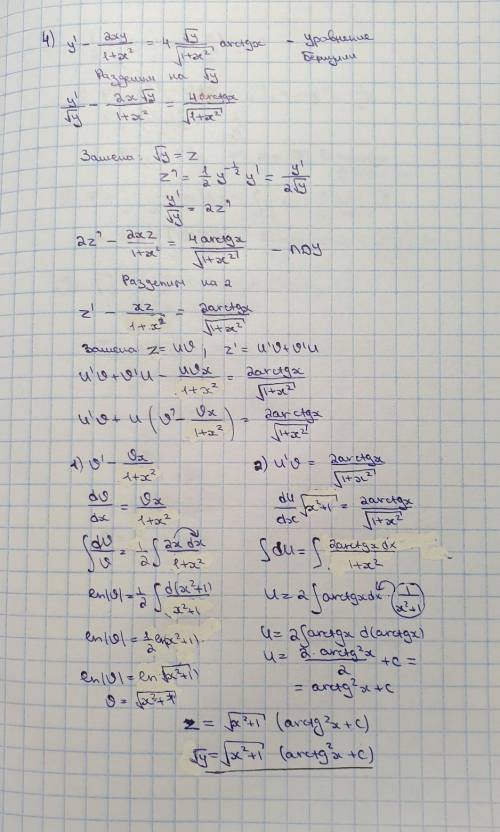 4) y' - 2xy/(1+x²) = 4 √y/√(1+x²) arctgx - уравнение Бернулли
Разделим на √y
y'/√y - 2x√y/(1+x²) = 4arctgx/√(1+x²)
Замена: √y = z
z' = 1/2 y^(-1/2) y' = y'/(2√y)
y'/√y = 2z'
2z' - 2xz/(1+x²) = 4arctgx/√(1+x²) - ЛДУ
Разделим на 2
z' - xz/(1+x²) = 2arctgx/√(1+x²)
Замена z = uv, z' = u'v + v'u
u'v + v'u - uvx/(1+x²) = 2arctgx/√(1+x²)
u'v + u (v' - vx/(1+x²)) = 2arctgx/√(1+x²)
1) v' - vx/(1+x²)
dv/dx = vx/(1+x²)
∫ dv/v = 1/2 ∫ 2x dx/(1+x²)
ln|v| = 1/2 ∫ d(x²+1)/(x²+1)
ln|v| = 1/2 ln(x²+1)
ln|v| = ln √(x²+1)
v = √(x²+1)
2) u'v = 2arctgx/√(1+x²)
du/dx √(x²+1) = 2arctgx/√(1+x²)
∫ du = ∫ 2arctgx dx/(1+x²)
u = 2 ∫ arctgx dx · 1/(x²+1)
u = 2 ∫ arctgx d(arctgx)
u = 2 · arctg²x/2 + c =
= arctg²x + c
z = √(x²+1) (arctg²x + c)
√y = √(x²+1) (arctg²x + c)